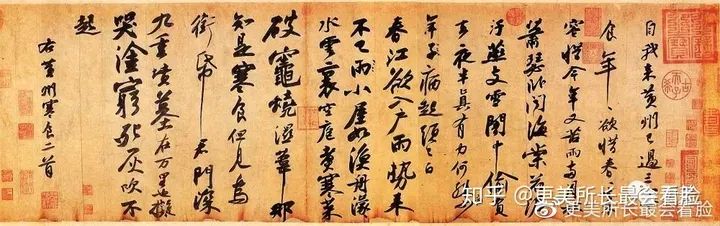 自我来黃州已過三寒
食年々欲惜春々去不
容惜今年又苦雨兩月秋
蕭瑟卧聞海棠花泥
汙燕支雪闇中偷負
去夜半真有力何殊少
年子病起頭已白
春江欲入戶雨勢来
不已雨小屋如漁舟濛々
水雲裏空庖煮寒菜
破竈燒濕葦那
知是寒食但見烏
銜帋君門深
九重墳墓在万里也擬
哭塗窮死灰吹不
起
右黃州寒食二首
知乎 @更美所长最会看脸
@更美所长最会看脸